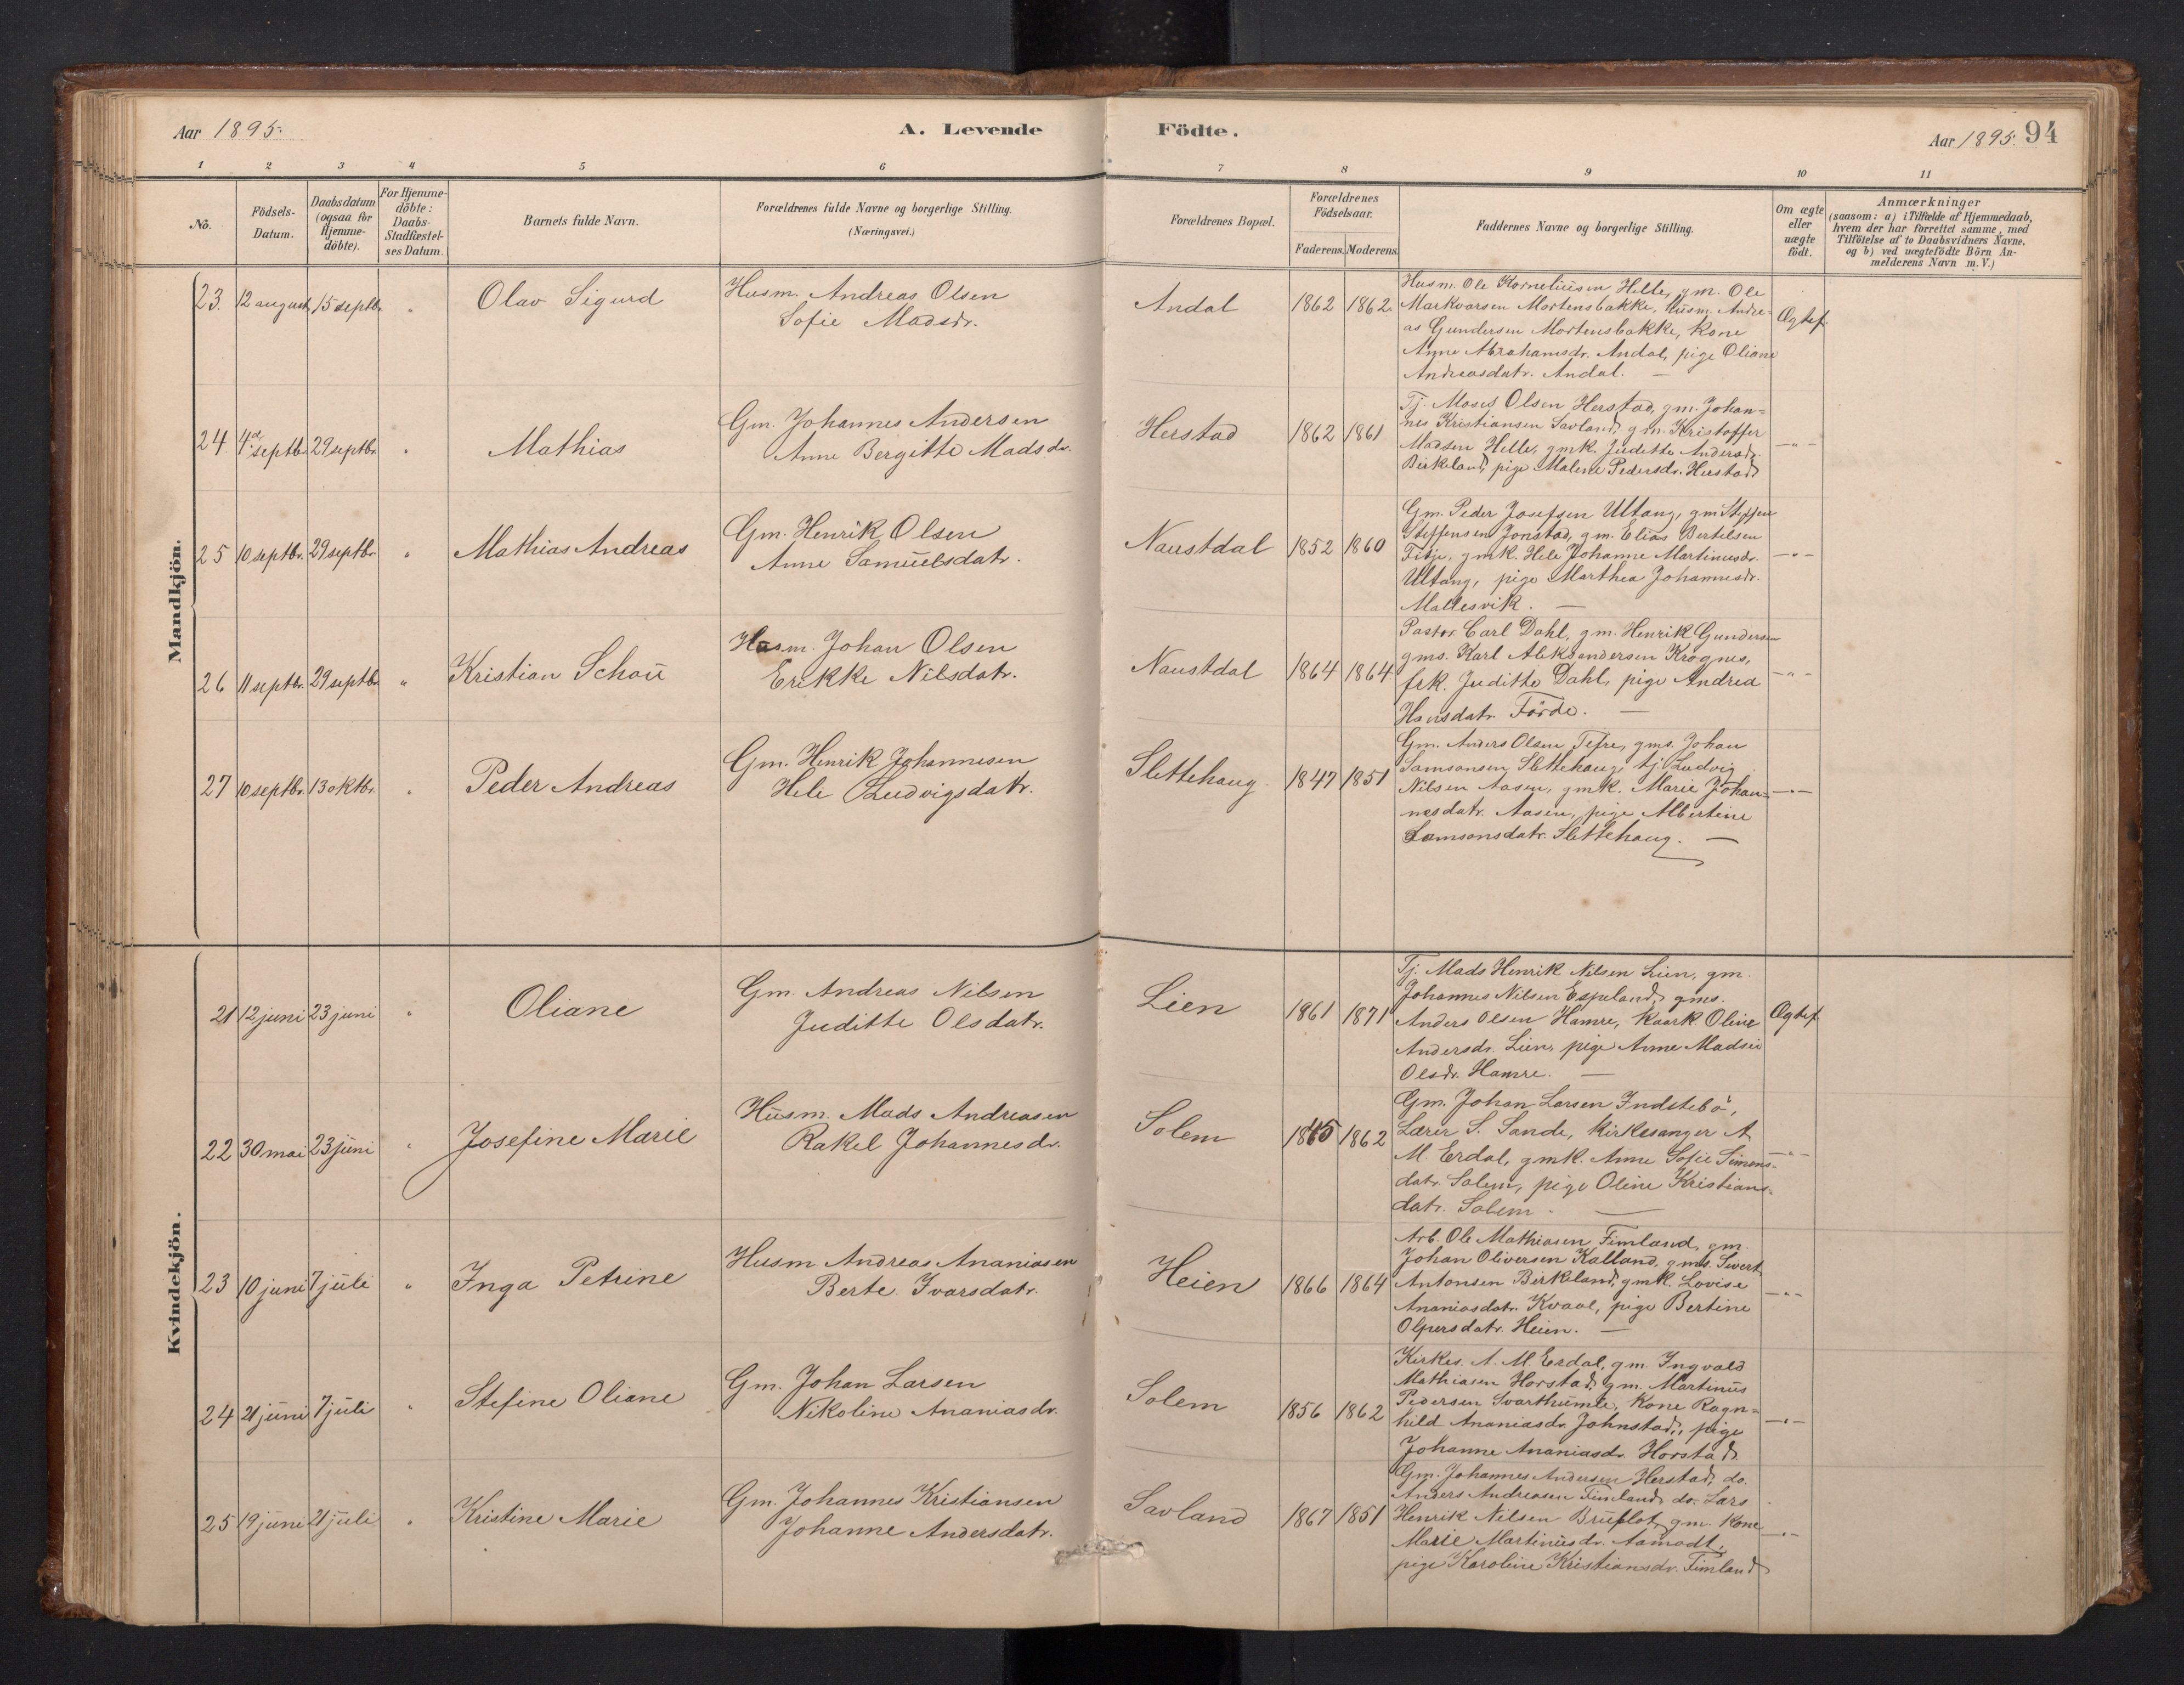 Aar 1895.
A. Levende Födte.
Aar 1895. 94
1 2 3 4 5 6 7 8 9 10 11
No.
Födsels-Datum.
Daabsdatum (ogsaa for Hjemmedöbte).
For Hjemmedöbte: Daabs-Stadfæstelses Datum.
Barnets fulde Navn.
Forældrenes fulde Navne og borgerlige Stilling. (Næringsvei.)
Forældrenes Bopæl.
Forældrenes Födselsaar.
Faderens. Moderens.
Faddernes Navne og borgerlige Stilling.
Om ægte eller uægte födt.
Anmærkninger
(saasom: a) i Tilfælde af Hjemmedaab,
hvem der har forrettet samme, med
Tilföielse af to Daabsvidners Navne.
og b) ved uægtefödte Börn Anmelderens Navn m. V.)
Mandkjön.
23. 12 august 15 septbr. " Olav Sigurd
Husm. Andreas Olsen
Sofie Madsdr.
Andal 1862 1862.
Husm. Ole Korneliusen Helle, gm. Ole
Markvarsen Mortensbakke, Husm. Andre-
as Gundersen Mortensbakke, kone
Anne Abrahamsdr. Andal, pige Oliane
Andreasdatr. Andal. —
Ægtef.
24. 4de septbr. 29 septbr. " Mathias
Gm. Johannes Andersen
Anne Bergitte Madsdr.
Herstad 1862 1861
Tj. Moses Olsen Herstad, gm. Johan=
nes Kristiansen Savland, gm. Kristoffer
Madsen Helle, gmk. Juditte Andersdr.
Birkeland, pige Malene Pedersdr. Herstad
—"—
25 10 septbr. 29 septbr. " Mathias Andreas
Gm. Henrik Olsen
Anne Samuelsdatr.
Naustdal 1852 1860
Gm. Peder Josefsen Ultang, gm Steffen
Steffensen Jonstad, gm. Elias Bertelsen
Fitje, gmk. Hele Johanne Martinusdr.
Ultang, pige Marthea Johannesdr.
Mallesvik. —
—"—
26 11 septbr. 29 septbr. " Kristian Schou
Husm. Johan Olsen
Erikke Nilsdatr.
Naustdal 1864 1864
Pastor Carl Dahl, gm. Henrik Gundersen
gms. Karl Aleksandersen Krognes,
frk. Juditte Dahl, pige Andrea
Hansdatr. Förde. —
—"—
27 10 septbr. 13 oktbr. " Peder Andreas
Gm. Henrik Johannesen
Hele Ludvigsdatr.
Slettehaug 1847 1851
Gm. Anders Olsen Tefre, gms. Johan
Samsonsen Slettehaug, tj. Ludvig
Nilsen Aasen, gmk. Marie Johan=
nesdatr. Aasen, pige Albertine
Samsonsdatr. Slettehaug. —
—"—
Kvindekjön.
21 12 juni 23 juni " Oliane
Gm. Andreas Nilsen
Juditte Olsdatr.
Lien 1861 1871
Tj. Mads Henrik Nilsen Lien, gm.
Johannes Nilsen Espeland, gms.
Anders Olsen Hamre, kaark. Oline
Andersdr. Lien, pige Anne Madsei
Olsdr. Hamre. —
Ægtef.
22 30 mai 23 juni " Josefine Marie
Husm. Mads Andreasen
Rakel Johannesdr.
Solem 1862
Gm. Johan Larsen Indstebö,
Lærer S. Sande, kirkesanger A.
M. Erdal, gmk. Anne Sofie Simons-
datr. Solem, pige Oline Kristians-
datr. Solem. —
—"—
23 10 juni 7 juli " Inga Petrine
Husm Andreas Ananiasen
Berte Ivarsdatr.
Heien 1866 1864
Arb. Ole Mathiasen Fimland, gm.
Johan Oliversen Kalland, gms. Sivert
Antonsen Birkeland, gmk. Lovise
Ananiasdatr. Kvaal, pige Bertine
Olpersdatr. Heien. —
—"—
24 21 juni 7 juli " Stefine Oliane
Gm. Johan Larsen
Nikoline Ananiasdr.
Solem 1856 1862
Kirkes. A. M. Erdal, gm. Ingvald
Mathiasen Horstad, gm. Martinus
Pedersen Svarthumle, Kone Ragn=
hild Ananiasdr. Johnstad, pige
Johanne Ananiasdr. Horstad.
—"—
25 19 juni 21 juli " Kristine Marie
Gm. Johannes Kristiansen
Johanne Andersdatr.
Savland 1867 1851
Gm. Johannes Andersen Herstad, do.
Anders Andreasen Fimland, do. Lars
Henrik Nilsen Bruflot, gm. Kone
Marie Martinusdr. Aamodt,
pige Karoline Kristiansdr. Fimland
—"—